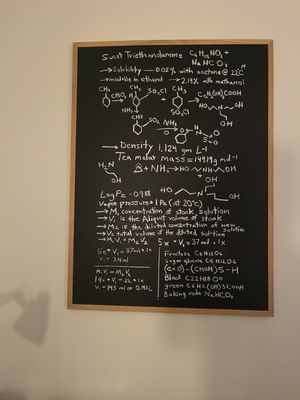 Swat Triethandamine C₆H₁₅NO₃ +
Na HCO₃
→Solubility — 0.05% with acetone @ 22°C
→insoluble in ethanol →2.13% with methanol
CH₃
CH₃
CH₃
SO₂Cl
C₆H₄(OH)COOH
NH₂
SO₂Cl
HO
OH
CH₃
SO₂ NH₂
OH
→ Density 1.124 gm L-1
Tea molar mass = 149.19 g md⁻¹
H₂N
OH
+ NH₃ → HO NH OH
Log P = -0.988
HO N OH
OH
Vapor pressure = 1 Pa (at 20°C)
→M₁ concentration of stock solution
→V₁ is the Aliquot volume of stock
→M₂ is the diluted concentration of new solution
→V₂ total volume of the diluted solution
→M₁V₁ = M₂V₂ 5x * V₁ = 37ml * 1x
5x * V₁ = 37ml * 1x
V₁ = 7.4ml
M₁V₁ = M₂V₂
14x * V₁ = 2L * 1x
V₁ = 143 ml or 0.143L
Fructose C₆H₁₂O₆
sugar glucose C₆H₁₂O₆
(c=0)-(CHOH)5-H
Black C22H18O11
green C₆H₂(OH)3COOH
Baking soda NaHCO₃